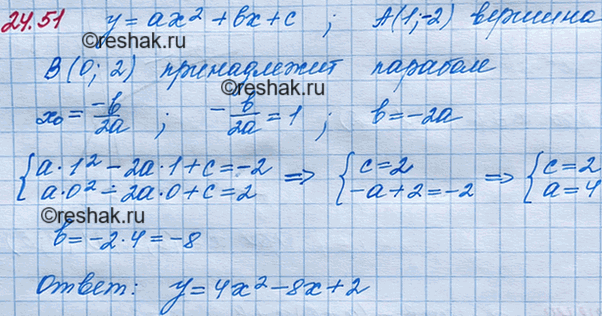 24.51 y = ax² + bx + c ; A(1;-2) вершина
©reshak.ru
B(0; 2) принадлежит параболе
©reshak.ru
x₀ = -b/2a ; -b/2a = 1 ; b = -2a
{a·1² - 2a·1 + c = -2 => {c = 2 => {c = 2
a·0² - 2a·0 + c = 2 -a + 2 = -2 a = 4
b = -2·4 = -8
©reshak.ru
Ответ: y = 4x² - 8x + 2